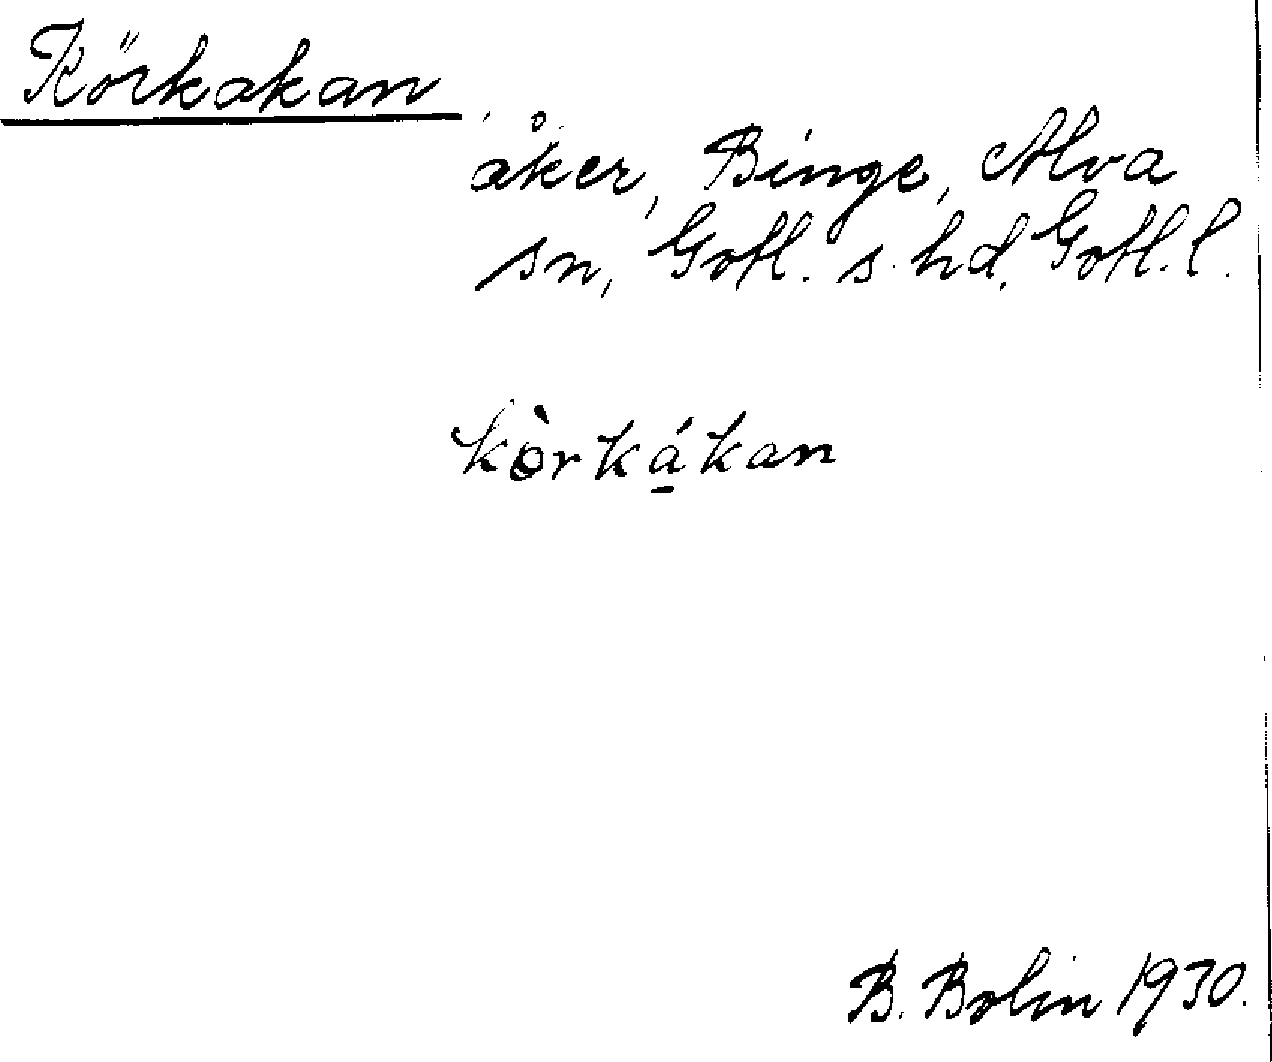 Körkakan
åker, Binge, Alva
sn, Gotl. s. hd, Gotl. l.
kòrká̱kan
B. Bolin 1930.